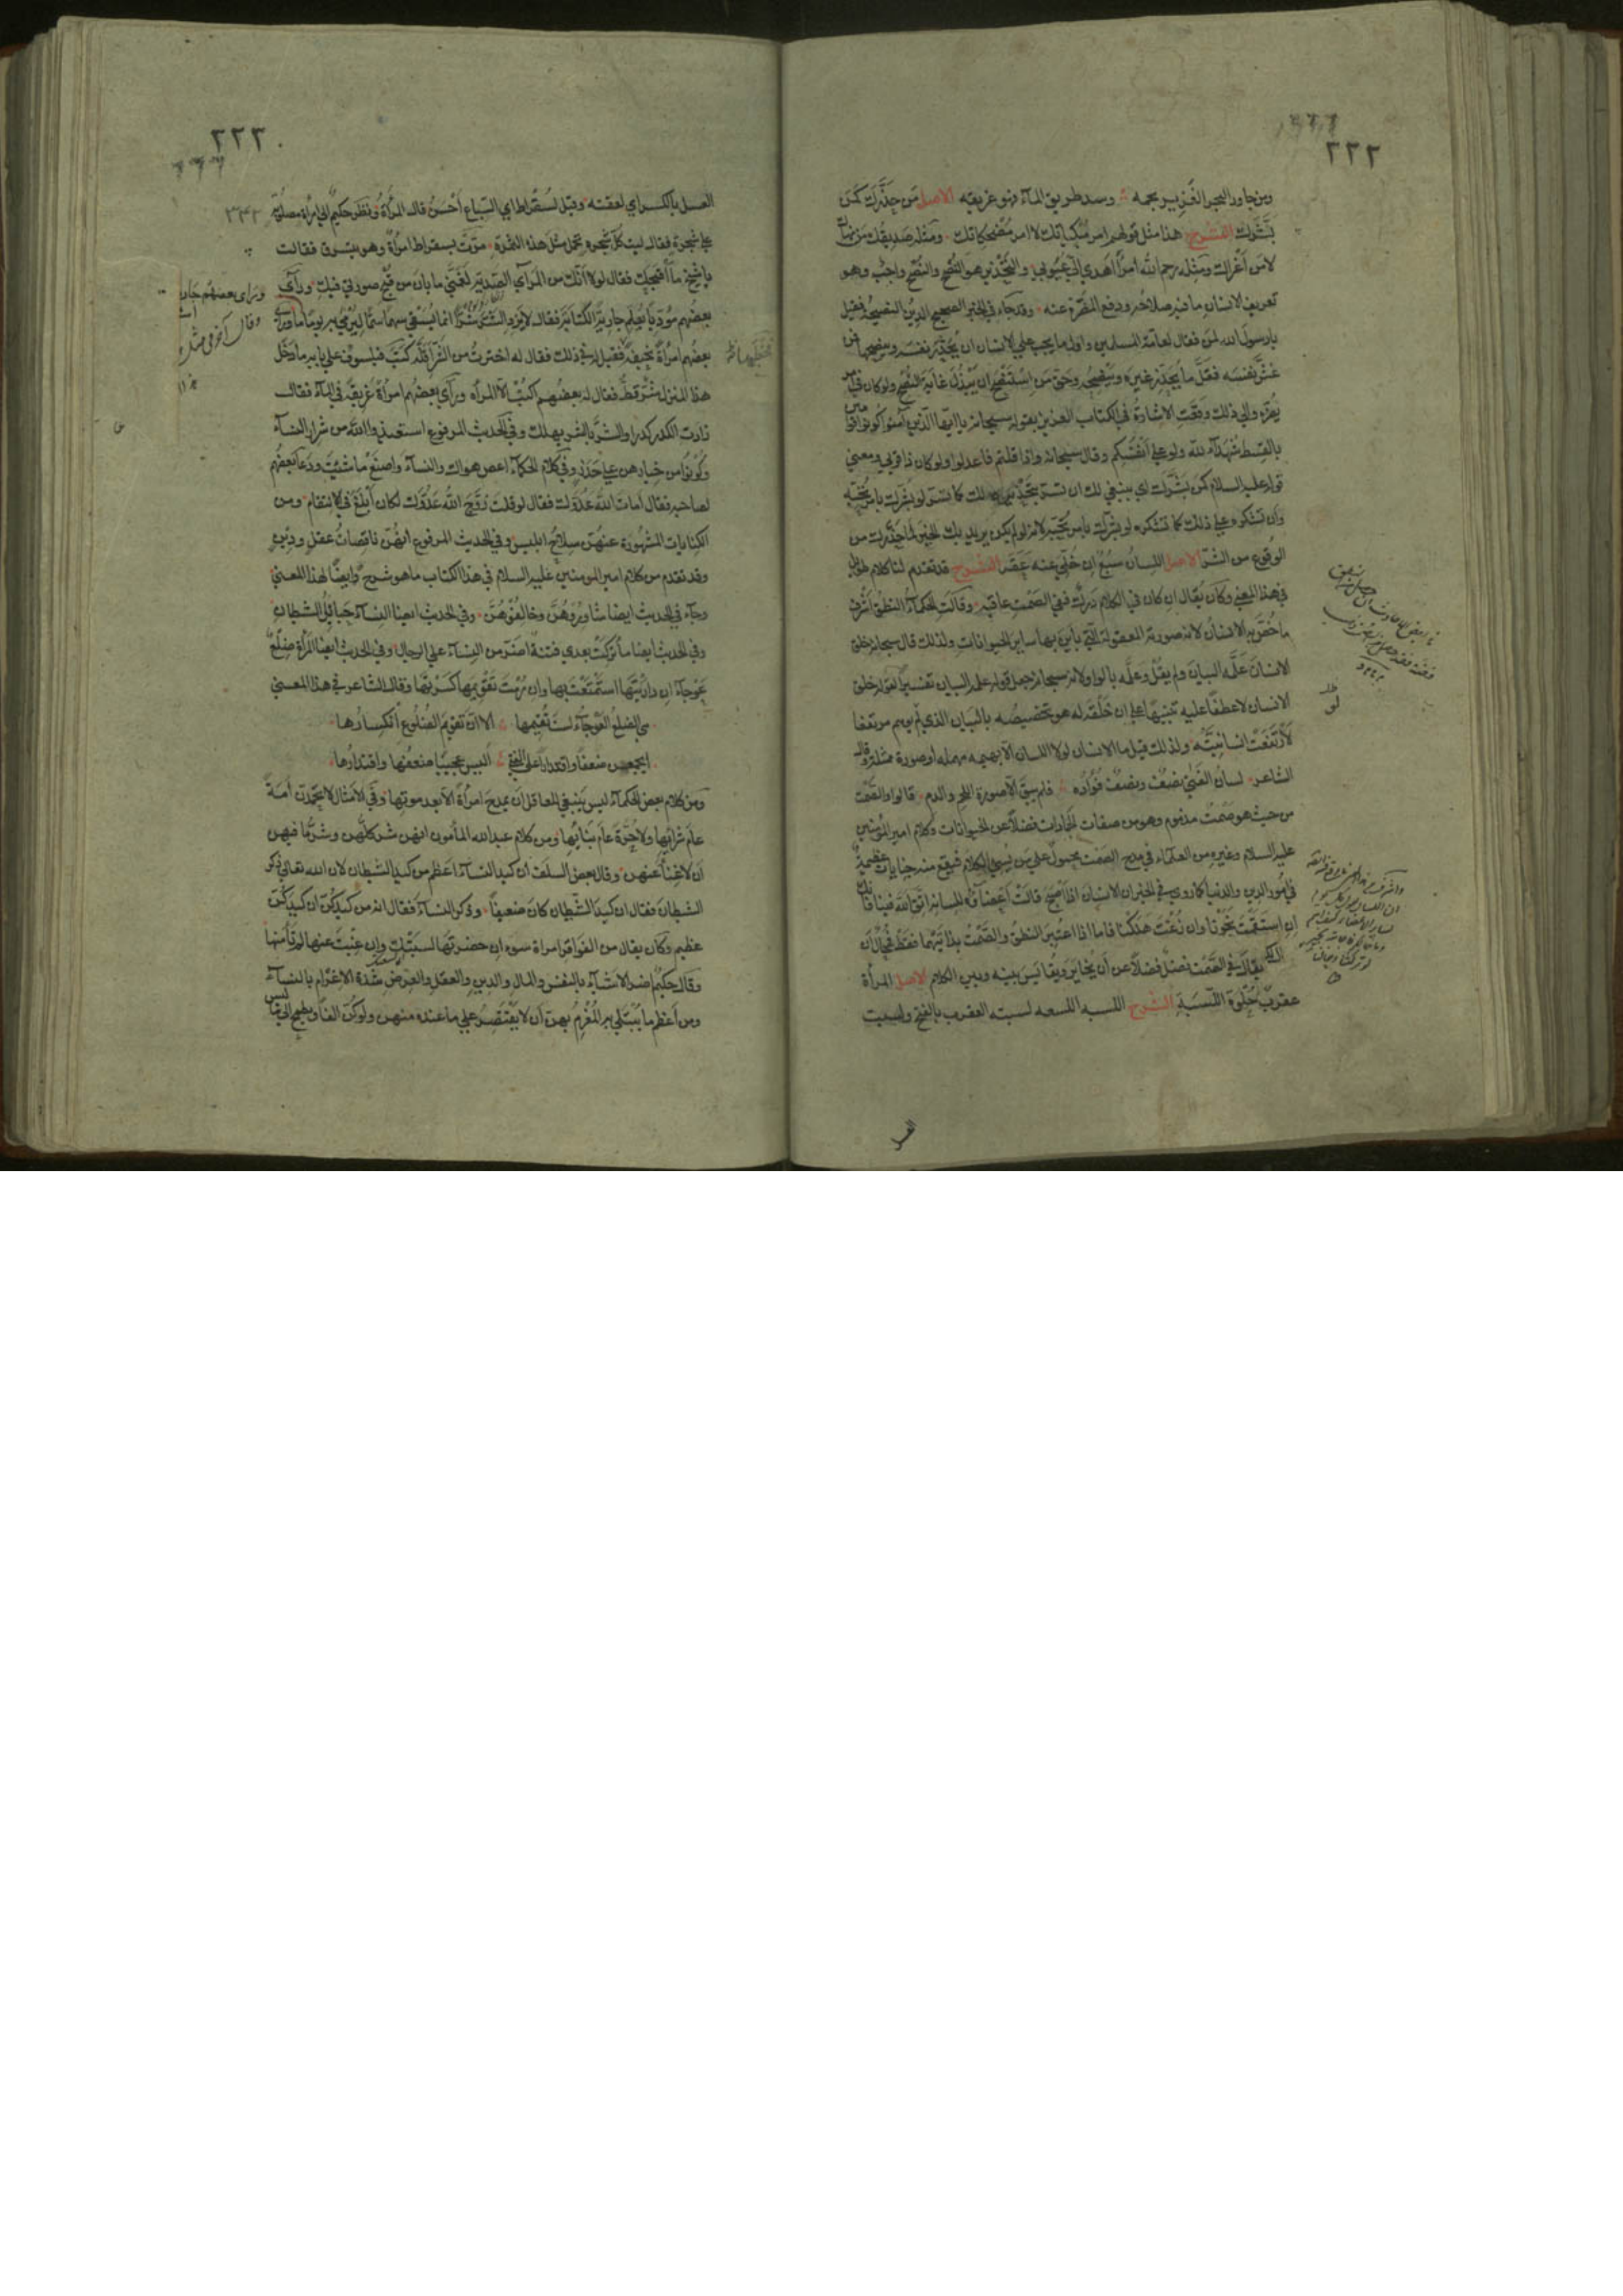 ٢٢٢
ومن جاور البحر الغزير بجمه وسد طريق الماء فهو غريقه الاصل من حذرك كمن
بشرك الشرح هذا مثل قولهم امر مبكياتك لا امر مضحكاتك ومثله صديقك من نهاك
لا من أغراك ومثله رحم الله امرأ أهدى الي عيوبي والتحذير هو النصح والنصح واجب وهو
تعريف الانسان ما فيه صلاحه ودفع المضرة عنه وقد جاء في الخبر الصحيح الدين النصيحة فقيل
يا رسول الله لمن فقال لعامة المسلمين واول ما يجب على الانسان ان يحذر نفسه وينصحها فمن
غش نفسه فقل ما يحذر غيره وينصحه وحق من استنصح ان يبذل غاية النصح ولو كان في امر
يضره والى ذلك وقعت الاشارة في الكتاب العزيز بقوله سبحانه يا ايها الذين آمنوا كونوا قوامين
بالقسط شهداء لله ولو على أنفسكم وقال سبحانه واذا قلتم فاعدلوا ولو كان ذا قربى ومعنى
قوله عليه السلام كمن بشرك اي ينبغي لك ان تسر بتحذيره لك كما تسر لو بشرك بامر تحبه
وأن تشكره على ذلك كما تشكره لو بشرك بامر تحبه لانه لو لم يكن يريد بك الخير لما حذرك من
الوقوع من الشر الاصل اللسان سبع إن خلي عنه عقر الشرح قد تقدم لنا كلام طويل
في هذا المعنى وكان يقال ان كان في الكلام درك ففي الصمت عافية وقالت الحكماء النطق أشرف
ما خص به الانسان لانه صورته المعقولة التي باين بها سائر الحيوانات ولذلك قال سبحانه خلق
الانسان علمه البيان ولم يقل وعلمه بالواو لانه سبحانه جعل قوله علمه البيان تفسيرا لقوله خلق
الانسان لا عطفا عليه تنبيها على ان خلقه له هو تخصيصه بالبيان الذي لو توهم مرتفعا
لارتفعت انسانيته ولذلك قيل ما الانسان لولا اللسان الا بهيمه مهمله او صورة ممثلة وقال
الشاعر لسان الفتى نصف ونصف فؤاده فلم يبق الا صورة اللحم والدم قالوا والصمت
من حيث هو صمت مذموم وهو من صفات الجمادات فضلا عن الحيوانات وكلام امير المؤمنين
عليه السلام وغيره من العلماء في مدح الصمت محمول على من يسيء الكلام فيقع منه جنايات عظيمة
في أمور الدين والدنيا كما روي في الخبر ان الانسان اذا أصبح قالت أعضاؤه للسانه اتق الله فينا فانك
إن استقمت نجونا وان زغت هلكنا فاما اذا اعتبر النطق والصمت بذاتيهما فقط فمحال أن
يقال في الصمت فضل فضلا عن أن يخاير ويقايس بينه وبين الكلام الاصل المرأة
عقرب حلوة اللسبة الشرح اللسبه اللسعه لسبته العقرب بالفتح ولسبت
العسل
٢٢٣
العسل بالكسر اي لعقته وقيل لسقراط اي السباع أحسن قال المرأة ونظر حكيم الى امرأة مصلوبة
على شجرة فقال ليت كل شجرة تحمل مثل هذه الثمرة مرت بسقراط امرأة وهو يتشوف فقالت
يا شيخ ما أقبحك فقال لولا أنك من المرآي الصدئة لغمني ما بان من قبح صورتي فيك ورأى
بعضهم مؤدبا يعلم جارية الكتابة فقال لا تزد الشر شرا انما تسقي سهما سما لترمي به يوما ما ورأى
بعضهم امرأة نحيفة فقيل له في ذلك فقال له اخترت من الشر أقله كتب فيلسوف على بابه ما دخل
هذا المنزل شر قط فقال له بعضهم اكتب الا المرأه ورأى بعضهم امرأة غريقة في الماء فقال
زادت الكدر كدرا والشر بالشر يهلك وفي الحديث المرفوع استعيذوا بالله من شرار النساء
وكونوا من خيارهن على حذر وفي كلام الحكماء اعص هواك والنساء واصنع ما شئت ودعا بعضهم
لصاحبه فقال أمات الله عدوك فقال لو قلت زوج الله عدوك لكان أبلغ في الانتقام ومن
الكنايات المشهورة عنهن سلاح ابليس وفي الحديث المرفوع انهن ناقصات عقل ودين
وقد تقدم من كلام امير المومنين عليه السلام في هذا الكتاب ما هو شرح وايضا لهذا المعنى
وجاء في الحديث ايضا شاوروهن وخالفوهن وفي الحديث ايضا النساء حبائل الشيطان
وفي الحديث ايضا ما تركت بعدي فتنة اضر من النساء على الرجال وفي الحديث ايضا المرأة ضلع
عوجاء ان داريتها استمتعت بها وان رمت تقويمها كسرتها وقال الشاعر في هذا المعنى
هي الضلع العوجاء لست تقيمها الا ان تقويم الضلوع انكسارها
ايجمعن ضعفا واقتدارا على الفتى أليس عجيبا ضعفها واقتدارها
ومن كلام بعض الحكماء ليس ينبغي للعاقل أن يمدح امرأة الا بعد موتها وفي الامثال لا تحمدن أمة
عام شرائها ولا حرة عام بنائها ومن كلام عبد الله المأمون انهن شر كلهن وشر ما فيهن
أن لا غنا عنهن وقال بعض السلف أن كيد النساء اعظم من كيد الشيطان لان الله تعالى ذكر
الشيطان فقال ان كيد الشيطان كان ضعيفا وذكر النساء فقال انه من كيدكن ان كيدكن
عظيم وكان يقال من الفواقر امراة سوء ان حضرتها لسبتك وان غبت عنها لم تأمنها
وقال حكيم اضر الاشياء بالنفس والمال والدين والعقل والعرض شدة الاغرام بالنساء
ومن أعظم ما يبتلى به المغرم بهن أن لا يقتصر على ما عنده منهن ولو كن الفا ويطمح الى ما ليس